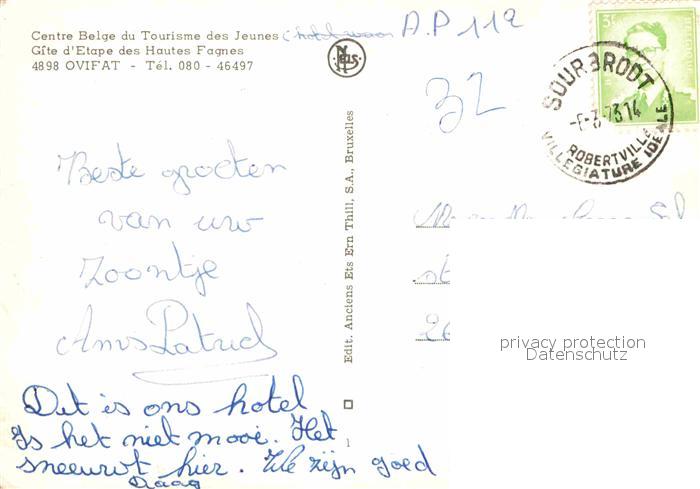 Centre Belge du Tourisme des Jeunes
Gîte d'Etape des Hautes Fagnes
4898 OVIFAT - Tél. 080 - 46497
A.P 112
NELS
32
SOURBRODT
-6-3-73 14
ROBERTVILLE
VILLEGIATURE IDEALE
Beste groeten
van uw
Zoontje
Patrick
Dit is ons hotel
Is het niet mooi. Het
sneeuwt hier. We zijn goed
Edit. Anciens Ets Ern Thill, S.A., Bruxelles
1
st
privacy protection
Datenschutz